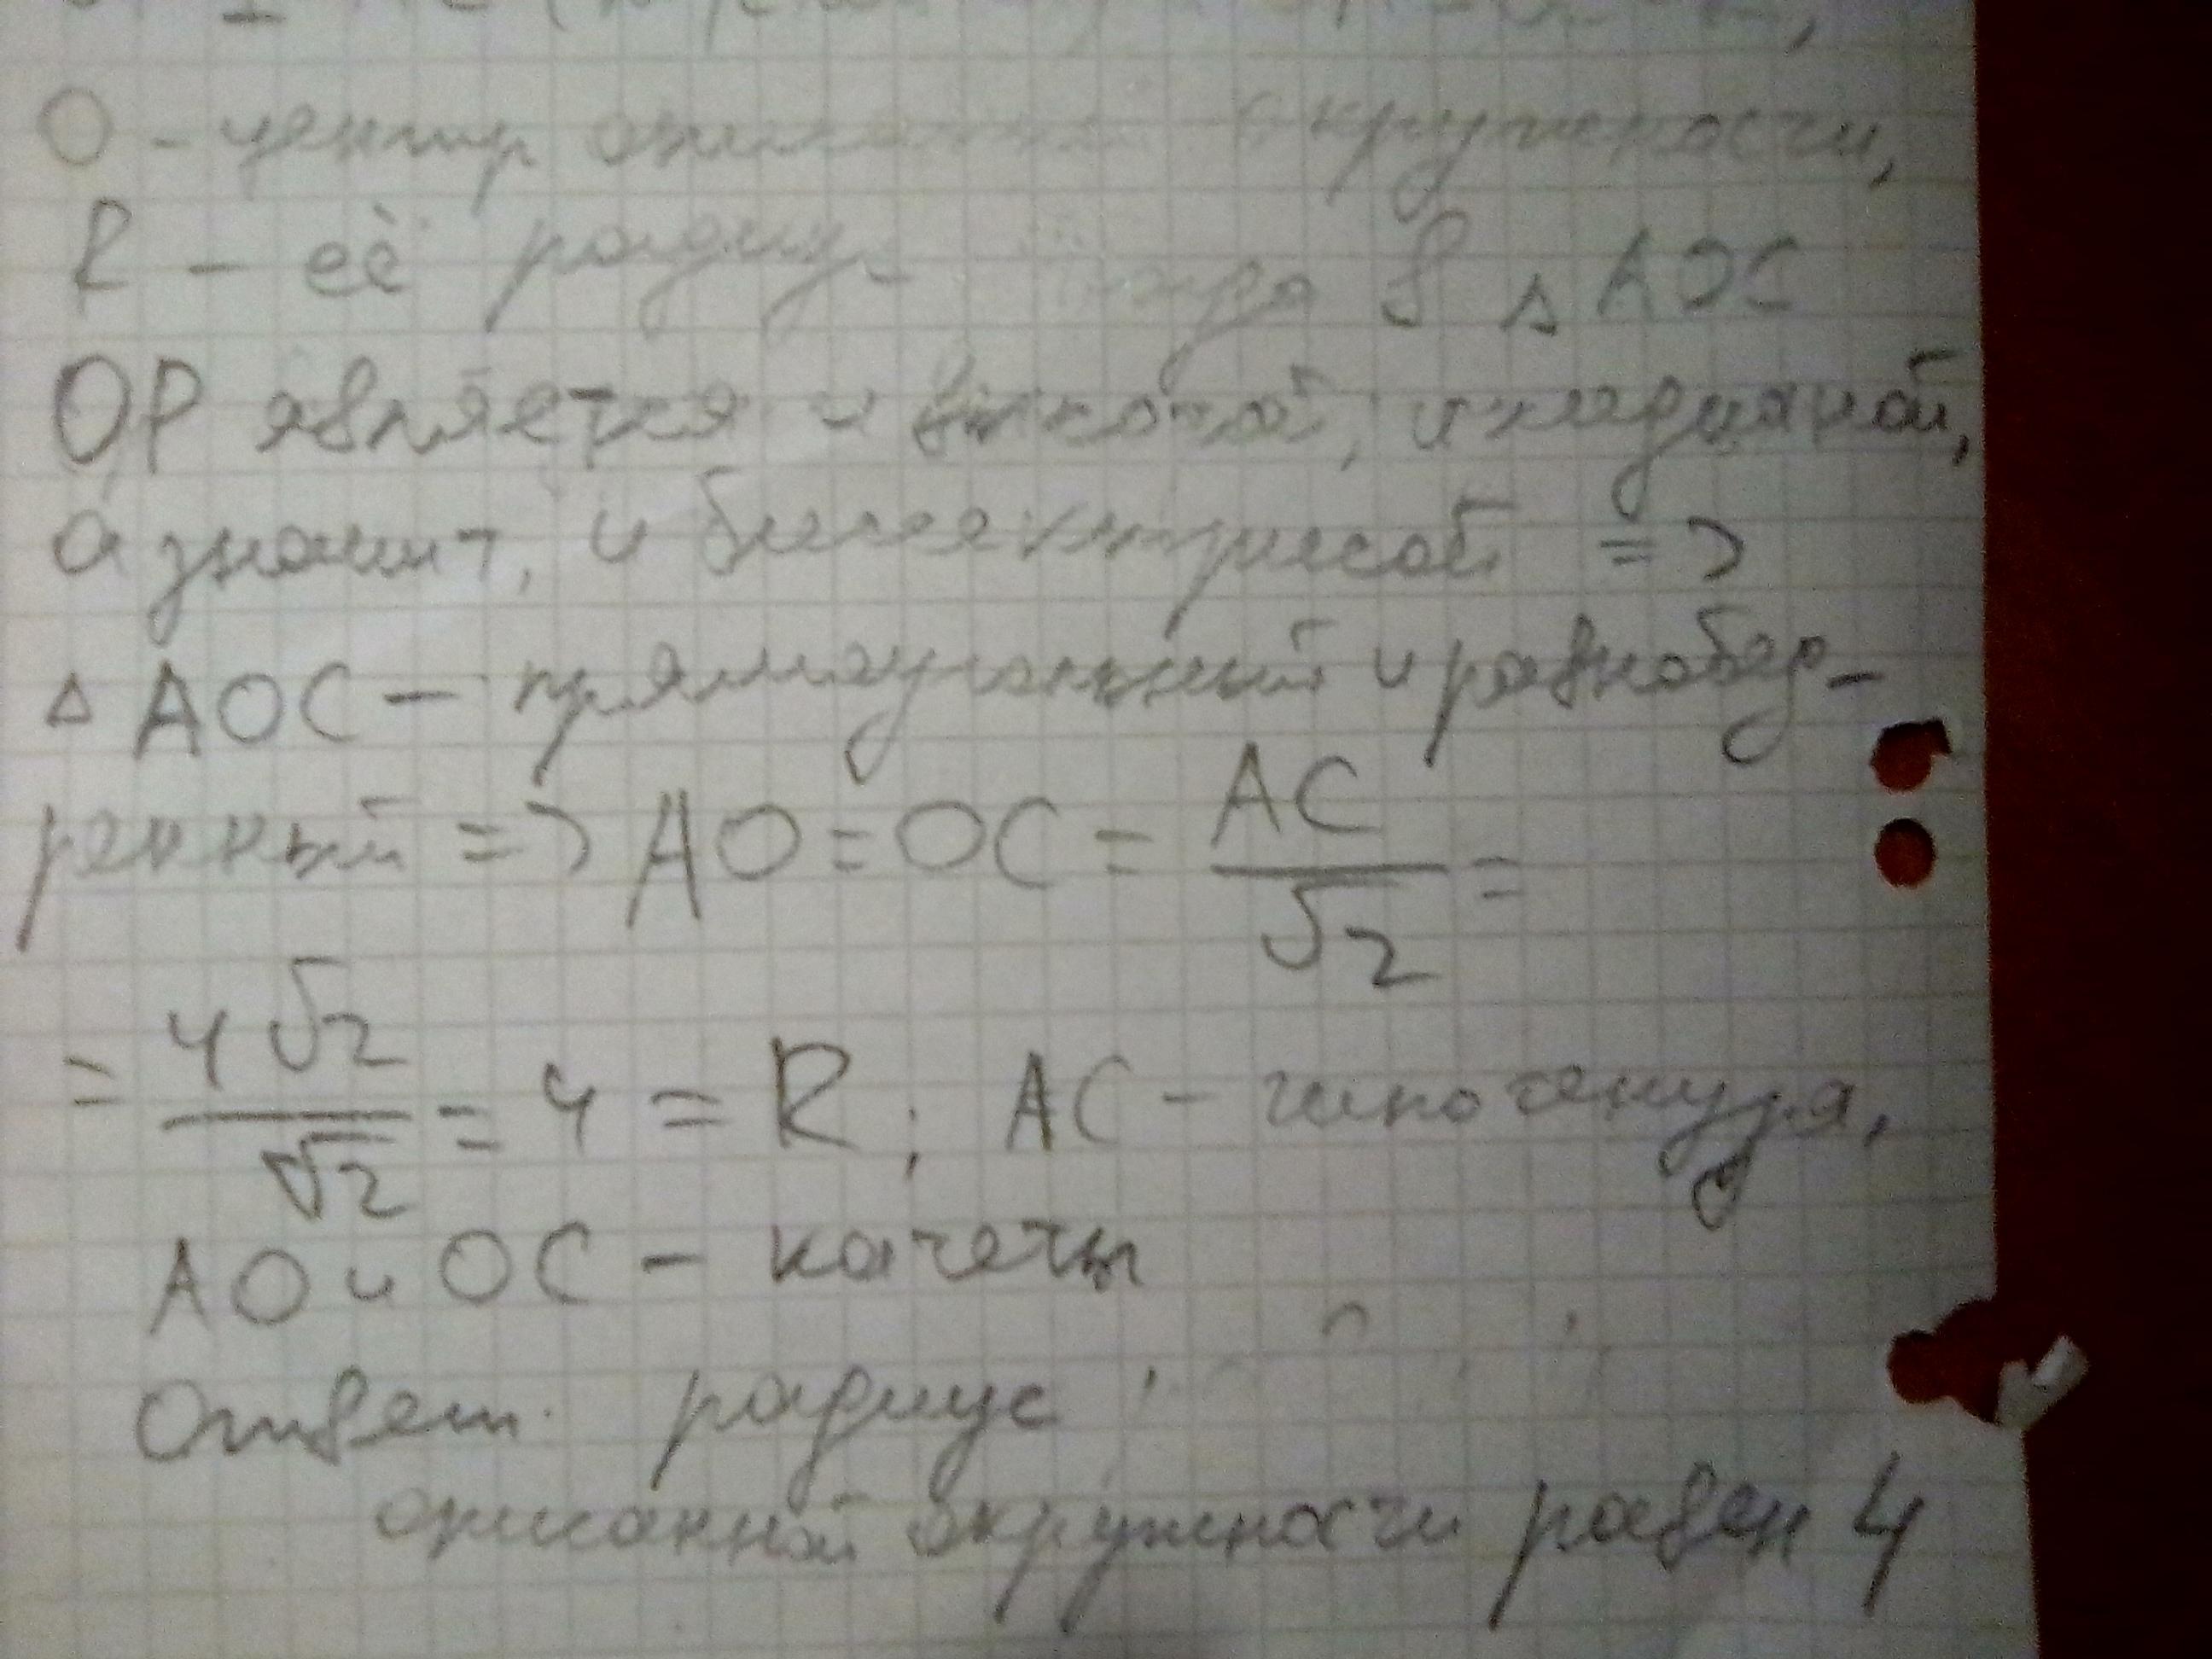 О - центр описанной окружности,
R - её радиус. тогда В △ АОС
ОР является и высотой, и медианой,
а значит, и биссектрисой =>
△ АОС - прямоугольный и равнобед-
ренный => АО = ОС = АС/√2 =
= 4√2/√2 = 4 = R; АС - гипотенуза,
АО и ОС - катеты
Ответ. радиус
описанной окружности равен 4